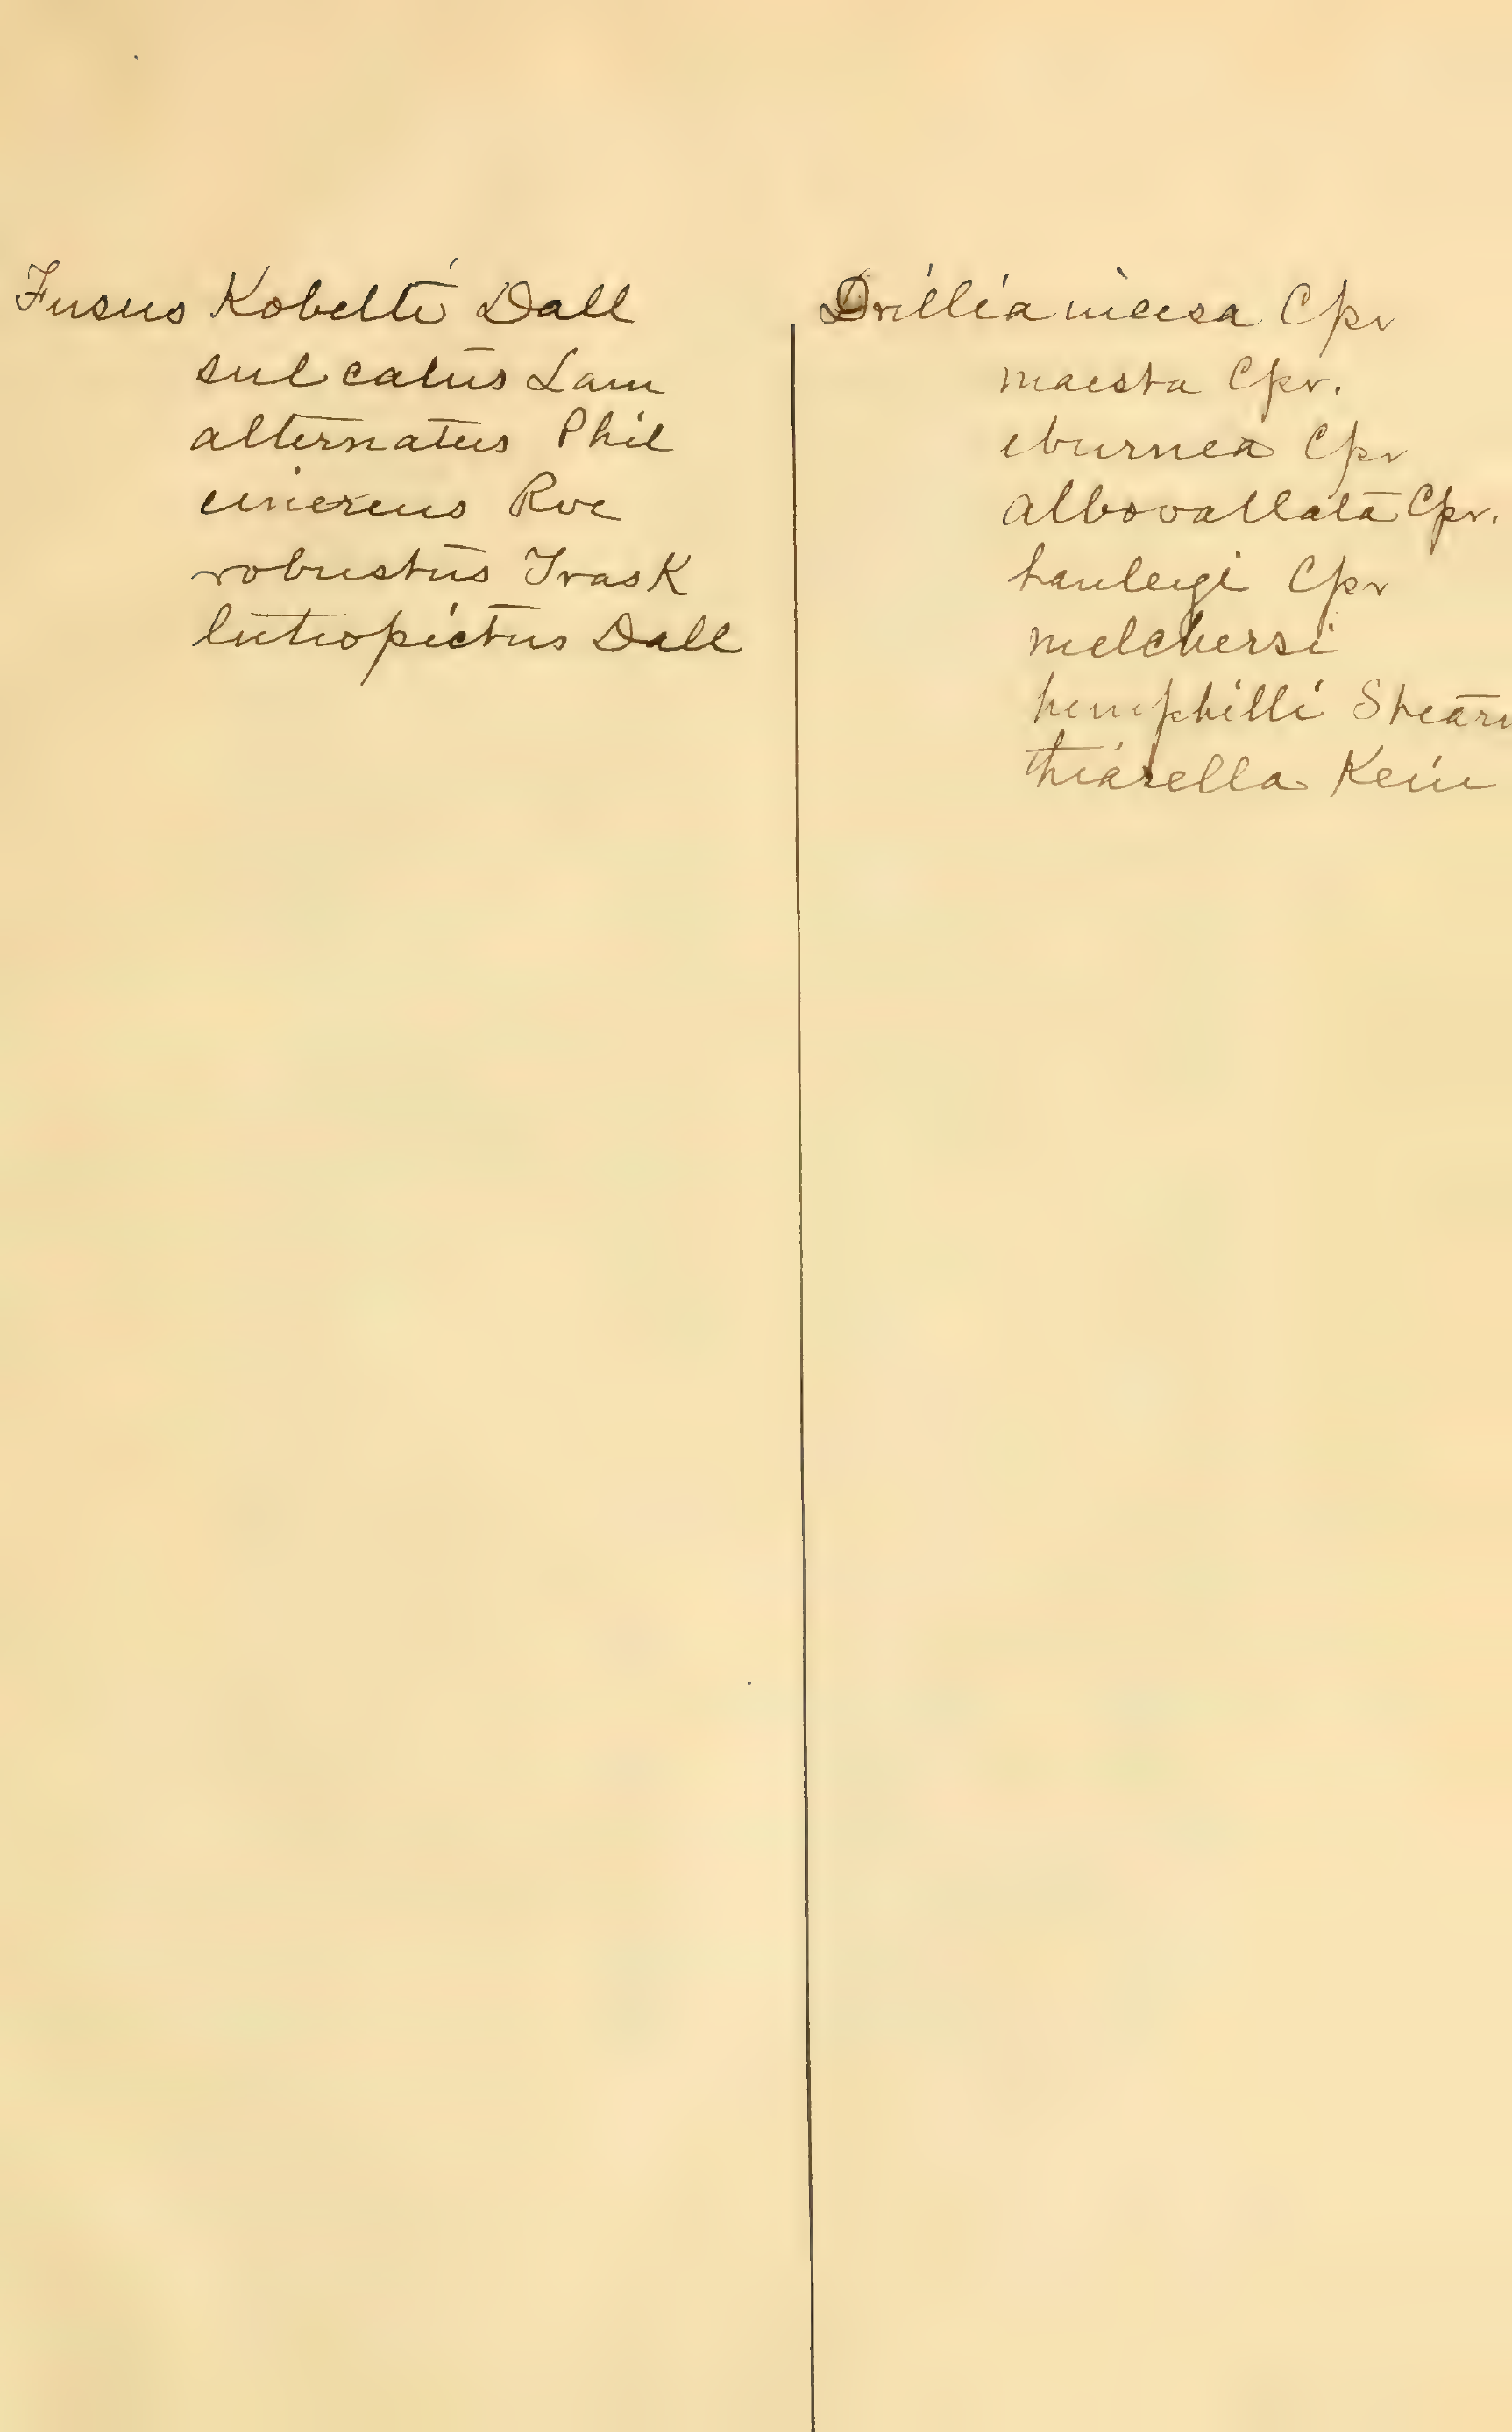 Fusus Kobelti Dall
sulcatus Lam
alternatus Phil
cinereus Rve
robustus Trask
luteopictus Dall
Drillia incisa Cpr
maesta Cpr.
eburnea Cpr
albovallata Cpr.
hanleyi Cpr
melchersi
hemphilli Stearn
thiarella Kein